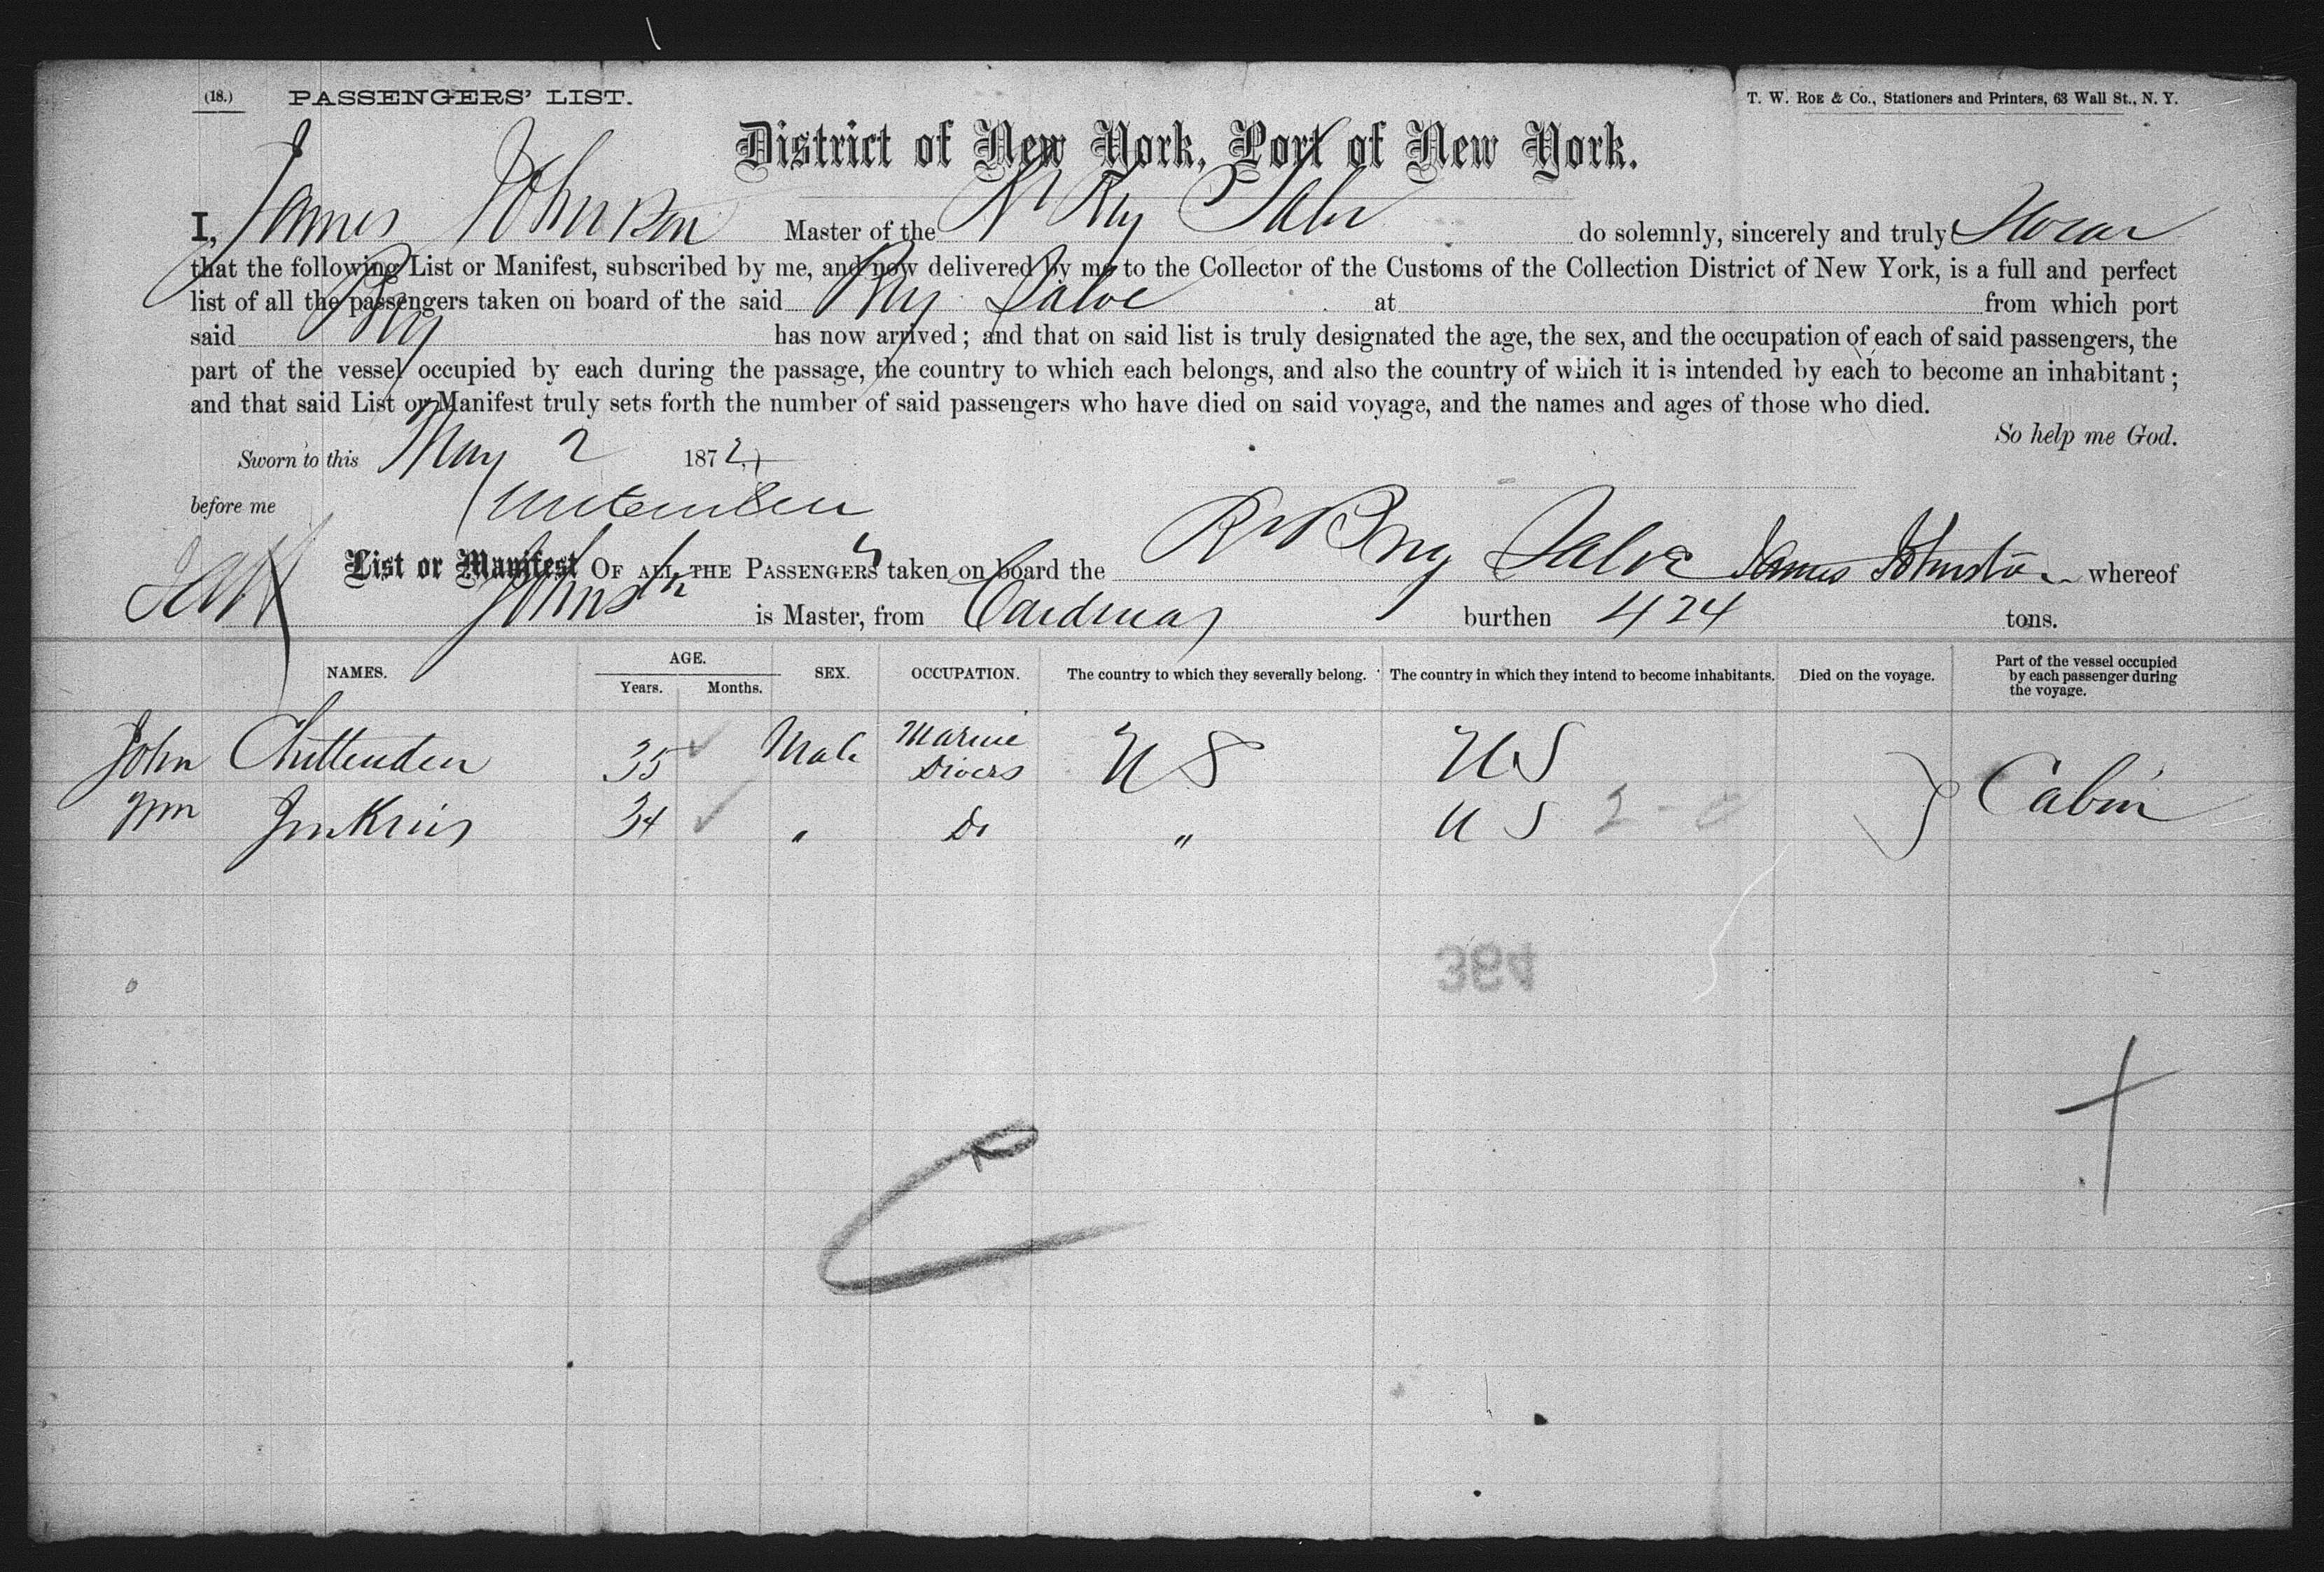 (18.) PASSENGERS' LIST. T. W. ROE & Co., Stationers and Printers, 63 Wall St., N. Y.
District of New York, Port of New York.
I, James Johnson Master of the Brig Salve do solemnly, sincerely and truly Swear
that the following List or Manifest, subscribed by me, and now delivered by me to the Collector of the Customs of the Collection District of New York, is a full and perfect
list of all the passengers taken on board of the said Brig Salve at from which port
said Brig has now arrived; and that on said list is truly designated the age, the sex, and the occupation of each of said passengers, the
part of the vessel occupied by each during the passage, the country to which each belongs, and also the country of which it is intended by each to become an inhabitant;
and that said List or Manifest truly sets forth the number of said passengers who have died on said voyage, and the names and ages of those who died.
So help me God.
Sworn to this May 2 1872
before me
List or Manifest OF ALL THE PASSENGERS taken on board the Brig Salve James Johnston whereof
Johnston is Master, from Cardenas burthen 424 tons.
NAMES. AGE. Years. Months. SEX. OCCUPATION. The country to which they severally belong. The country in which they intend to become inhabitants. Died on the voyage. Part of the vessel occupied by each passenger during the voyage.
John Chittenden 35 Male Marine Divers U S U S Cabin
Wm Jenkins 34 " Do " U S 2-0
384
C